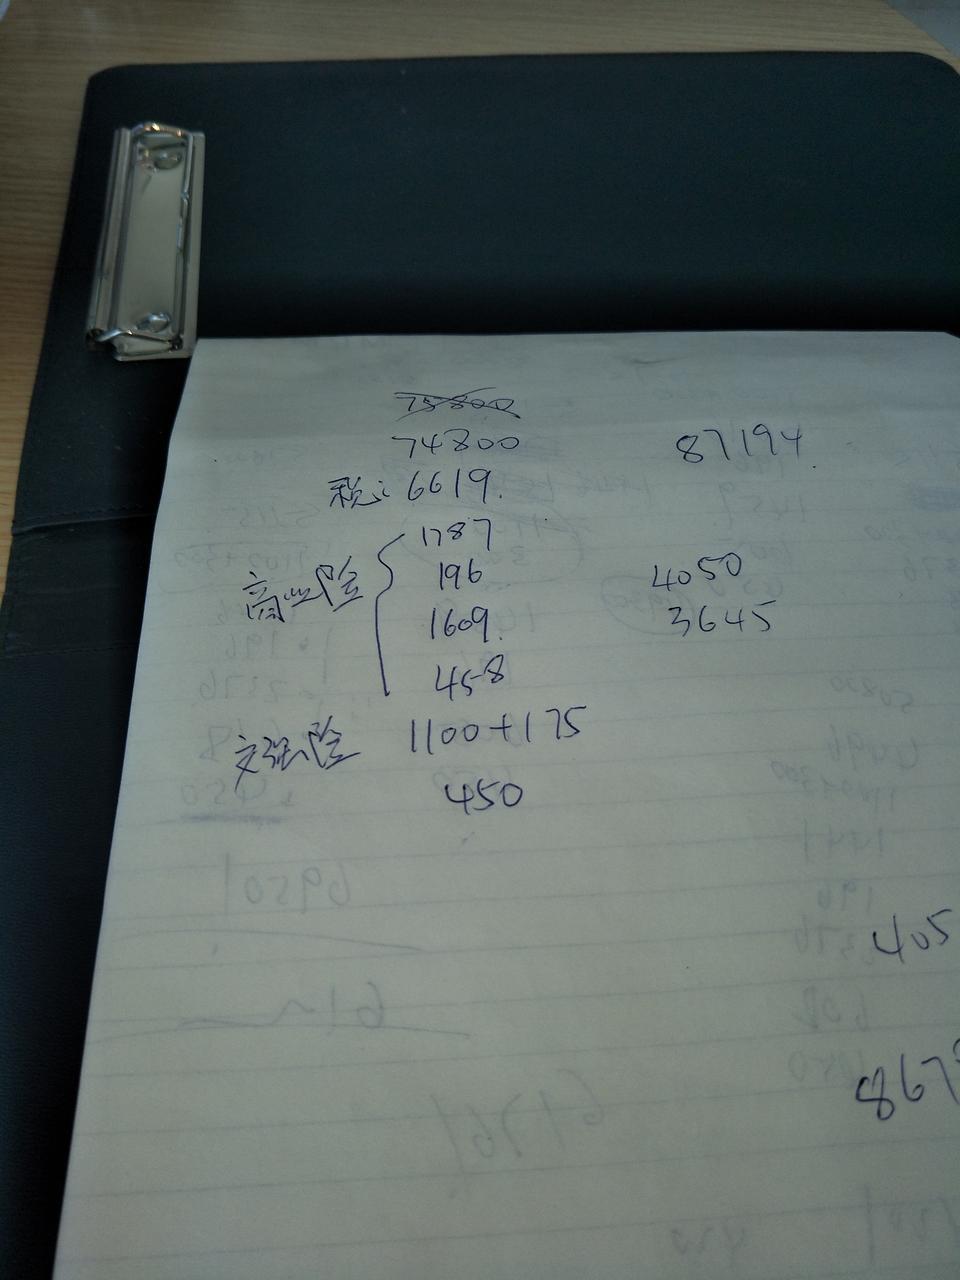 75800
74800
87194
税: 6619.
1787
商业险
196
4050
1609.
3645
458
交强险 1100+175
450
405
867